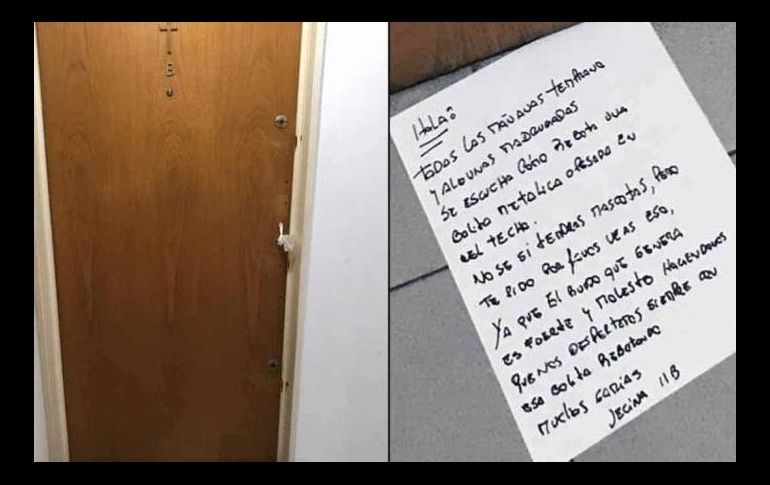 B
Hola:
TODAS LAS MAÑANAS TEMPRANO
Y ALGUNAS MADRUGADAS
SE ESCUCHA CÓMO REBOTA UNA
BOLITA METALICA O PESADA EN
EL TECHO.
NO SE SI TENDRAS MASCOTAS, PERO
TE PIDO POR FAVOR VEAS ESO,
YA QUE EL RUIDO QUE GENERA
ES FUERTE Y MOLESTO HACIENDONOS
QUE NOS DESPERTEMOS SIEMPRE CON
ESA BOLITA REBOTANDO
MUCHAS GRACIAS
VECINA 11B